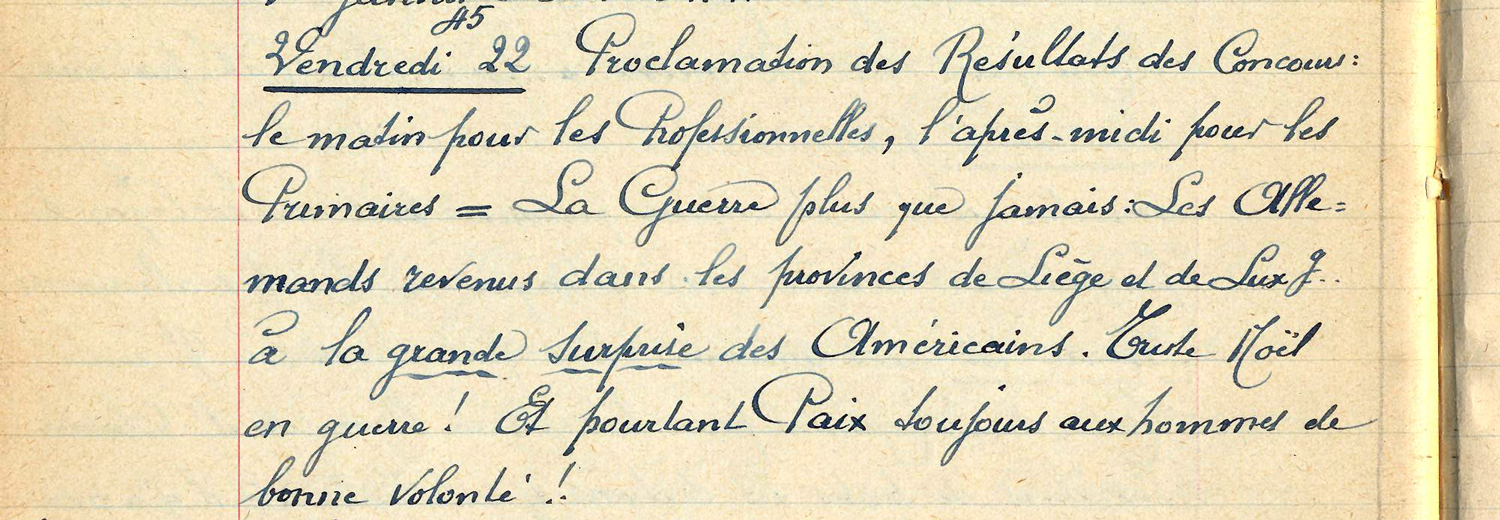 45
Vendredi 22 Proclamation des Résultats des Concours:
le matin pour les Professionnelles, l'après-midi pour les
Primaires = La Guerre plus que jamais: Les Alle=
mands revenus dans les provinces de Liège et de Luxg..
à la grande surprise des Américains. Triste Noël
en guerre! Et pourtant Paix toujours aux hommes de
bonne volonté!